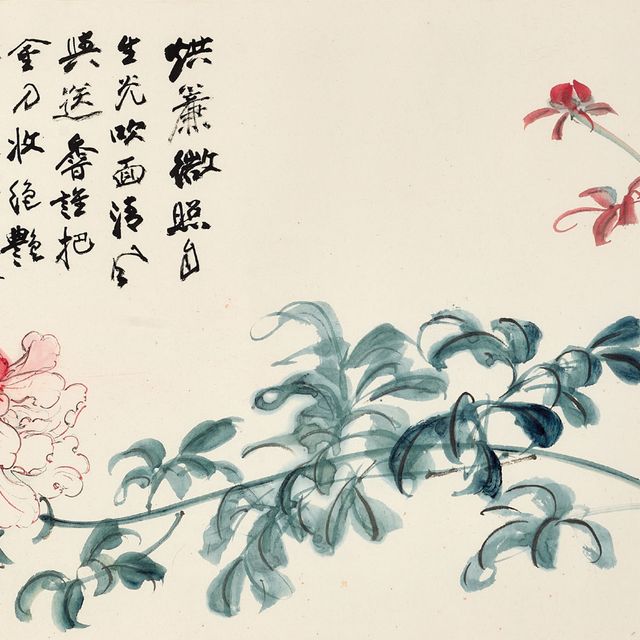 烘簾微照自
生光吹面清風
與送香誰把
金刀收絕艷